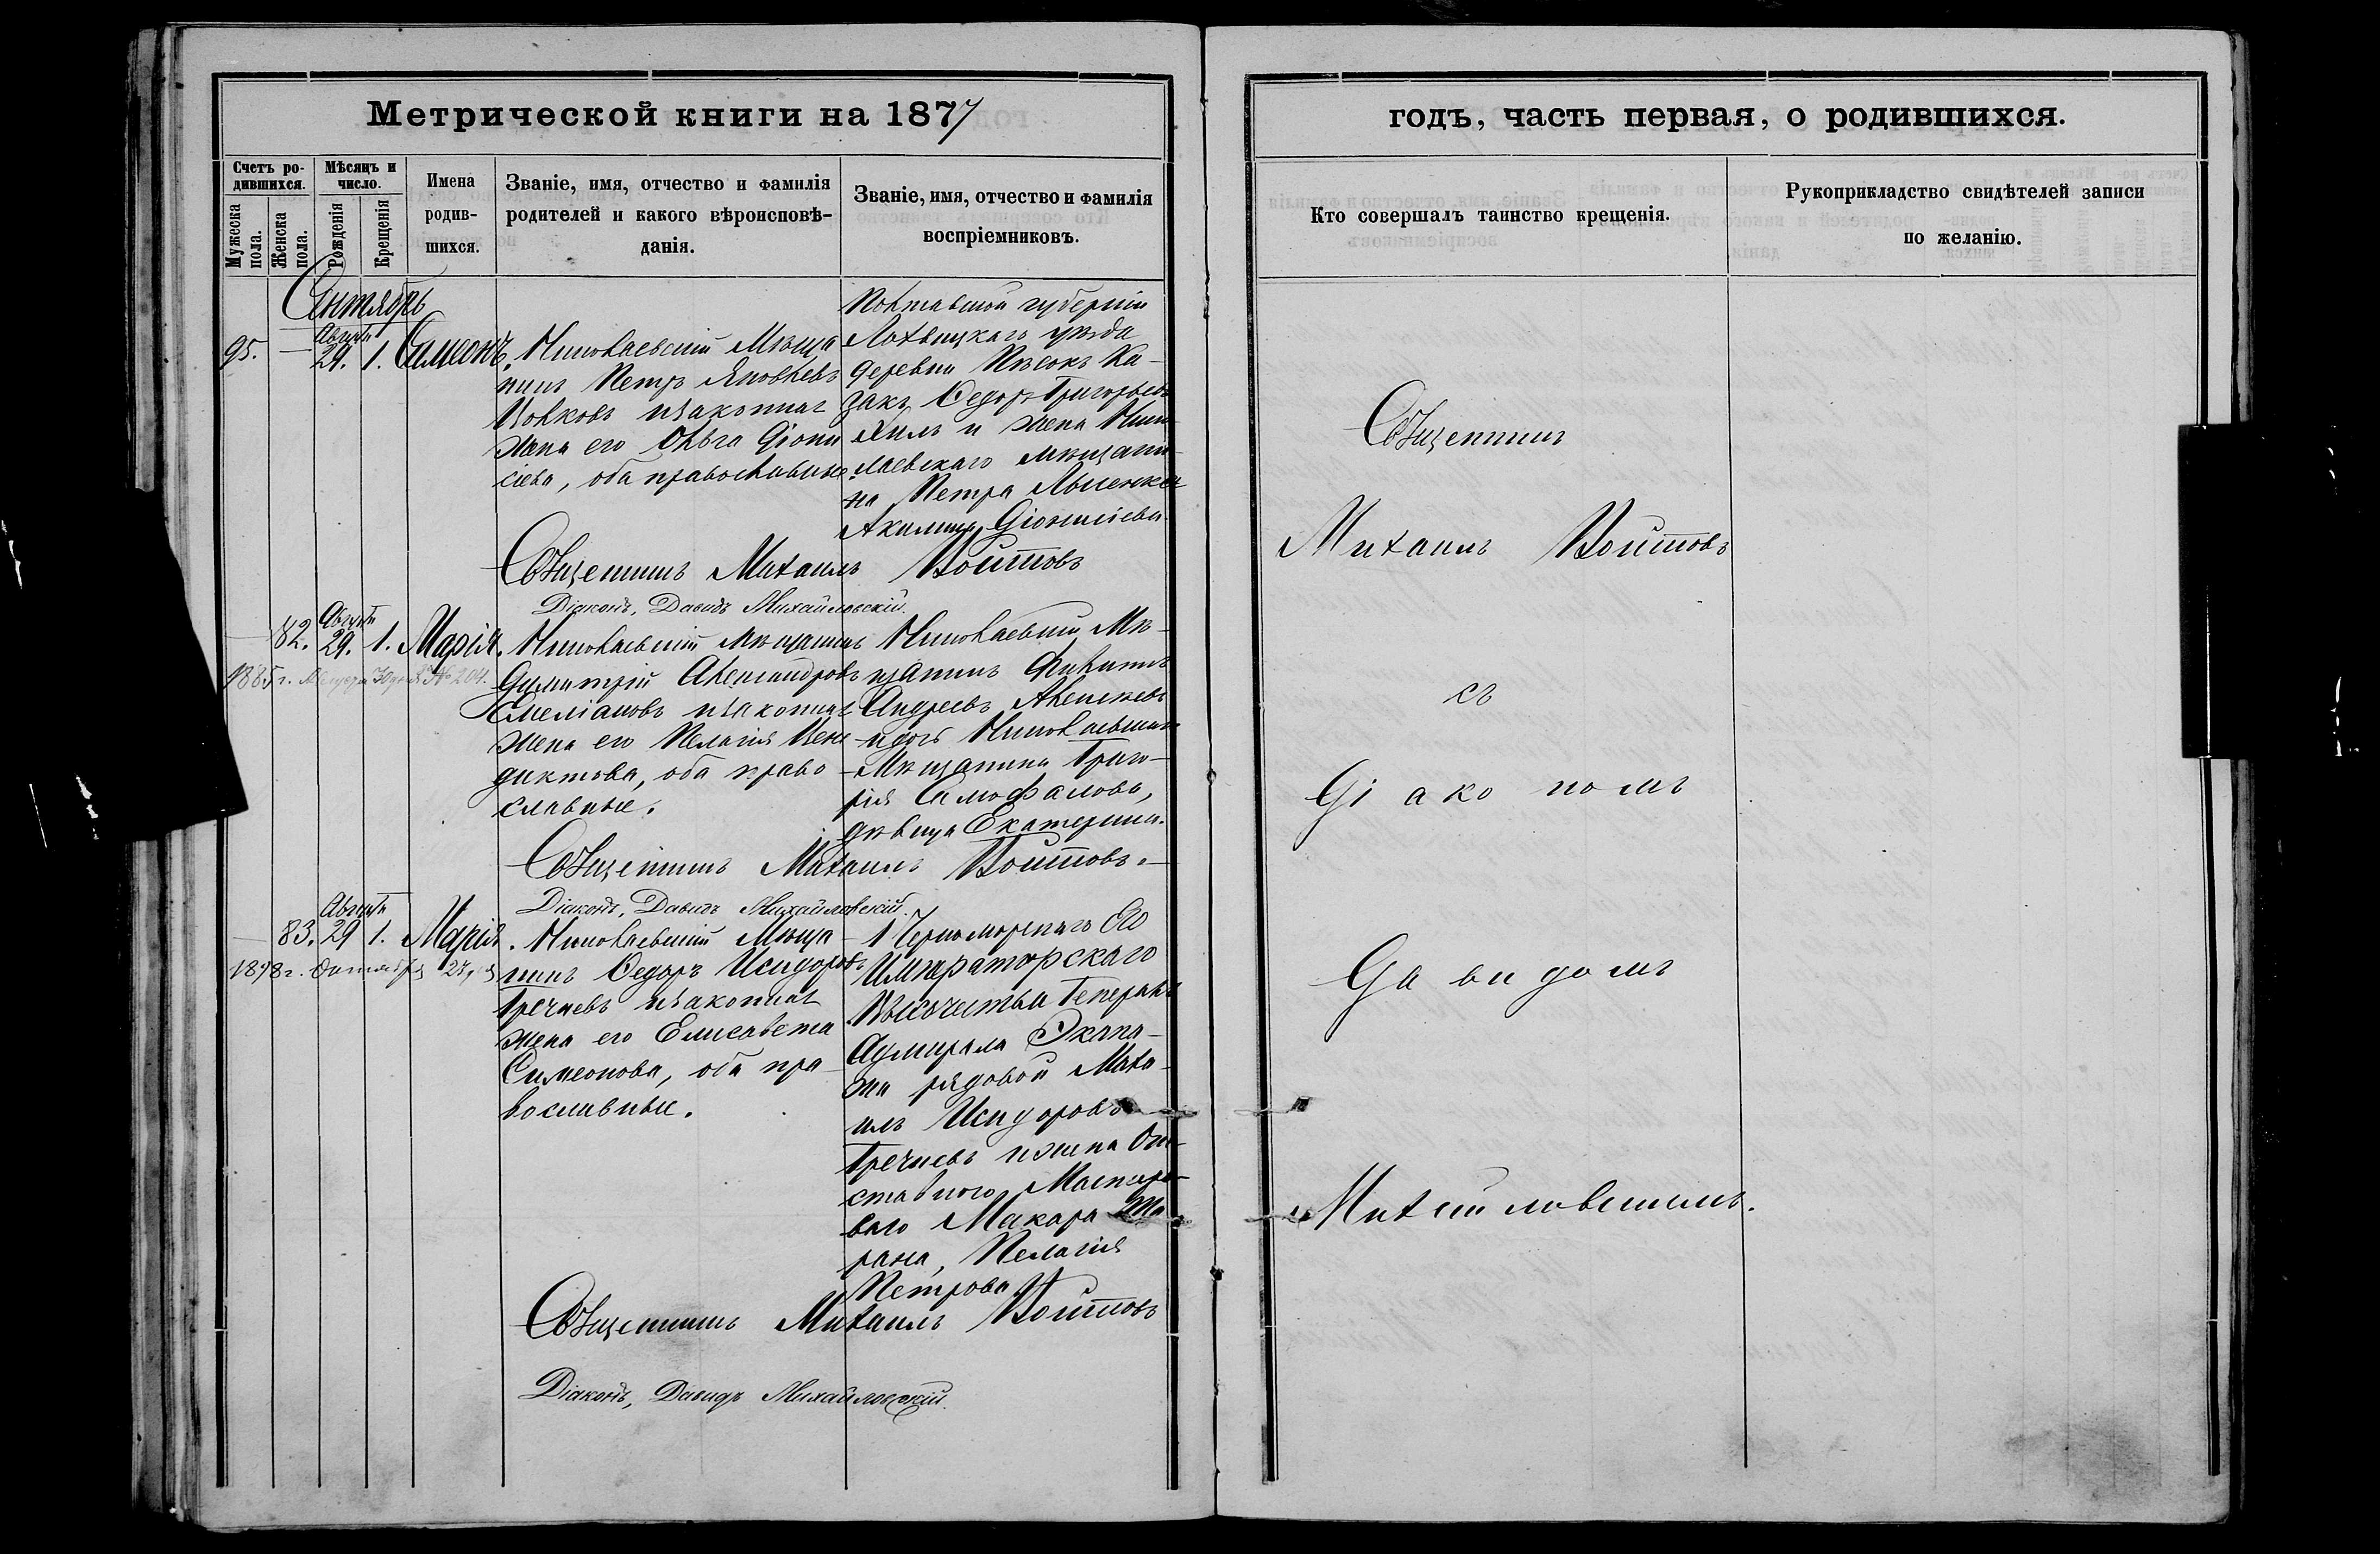 Метрической книги на 1877
Счетъ ро-
дившихся.
Мужеска
пола.
Женска
пола.
Мѣсяцъ и
число.
Рожденія
Крещенія
Имена
родив-
шихся.
Званіе, имя, отчество и фамилія
родителей и какого вѣроисповѣ-
данія.
Званіе, имя, отчество и фамилія
воспріемниковъ.
Сентябрь
95.
—
Августа
29.
1.
Симеонъ.
Николаевскій мѣща
нинъ Петръ Яковлевъ
Волковъ и законная
жена его Ольга Діони
сіева, оба православные
Полтавской губерніи
Лохвицкаго уѣзда
деревни Пѣсокъ Ка-
закъ Ѳедоръ Григорьевъ
и жена Нико-
лаевскаго мѣщани-
на Петра
Акилина Діонисіева.
Священникъ Михаилъ Войтовъ
Діаконъ, Давидъ Михайловскій.
82.
Августа
29.
1.
Марія.
1885 г. № 204.
Николаевскій мѣщанинъ
Димитрій Александровъ
Емеліановъ и законная
жена его Пелагія Вене
диктова, оба право
славные.
Николаевскій мѣ-
щанинъ Филиппъ
Андреевъ
и дочь Николаевскаго
мѣщанина Григо-
рія Самофалова,
дѣвица Екатерина.
Священникъ Михаилъ Войтовъ.
Діаконъ, Давидъ Михайловскій.
83.
Августа
29
1.
Марія.
1898 г. Октября
Николаевскій мѣща-
нинъ Ѳедоръ Исидоровъ
Гречневъ и законная
жена его Елисавета
Симеонова, оба пра-
вославные.
1 Черноморскаго Его
Императорскаго
Высочества Генералъ
Адмирала Экипа-
жа рядовой Миха-
илъ Исидоровъ
Гречневъ и жена От-
ставного Мастеро-
ваго Макара
Пелагія
Петрова
Священникъ Михаилъ Войтовъ
Діаконъ, Давидъ Михайловскій.
годъ, часть первая, о родившихся.
Кто совершалъ таинство крещенія.
Рукоприкладство свидѣтелей записи
по желанію.
Священникъ
Михаилъ Войтовъ
съ
Діакономъ
Давидомъ
Михайловскимъ.